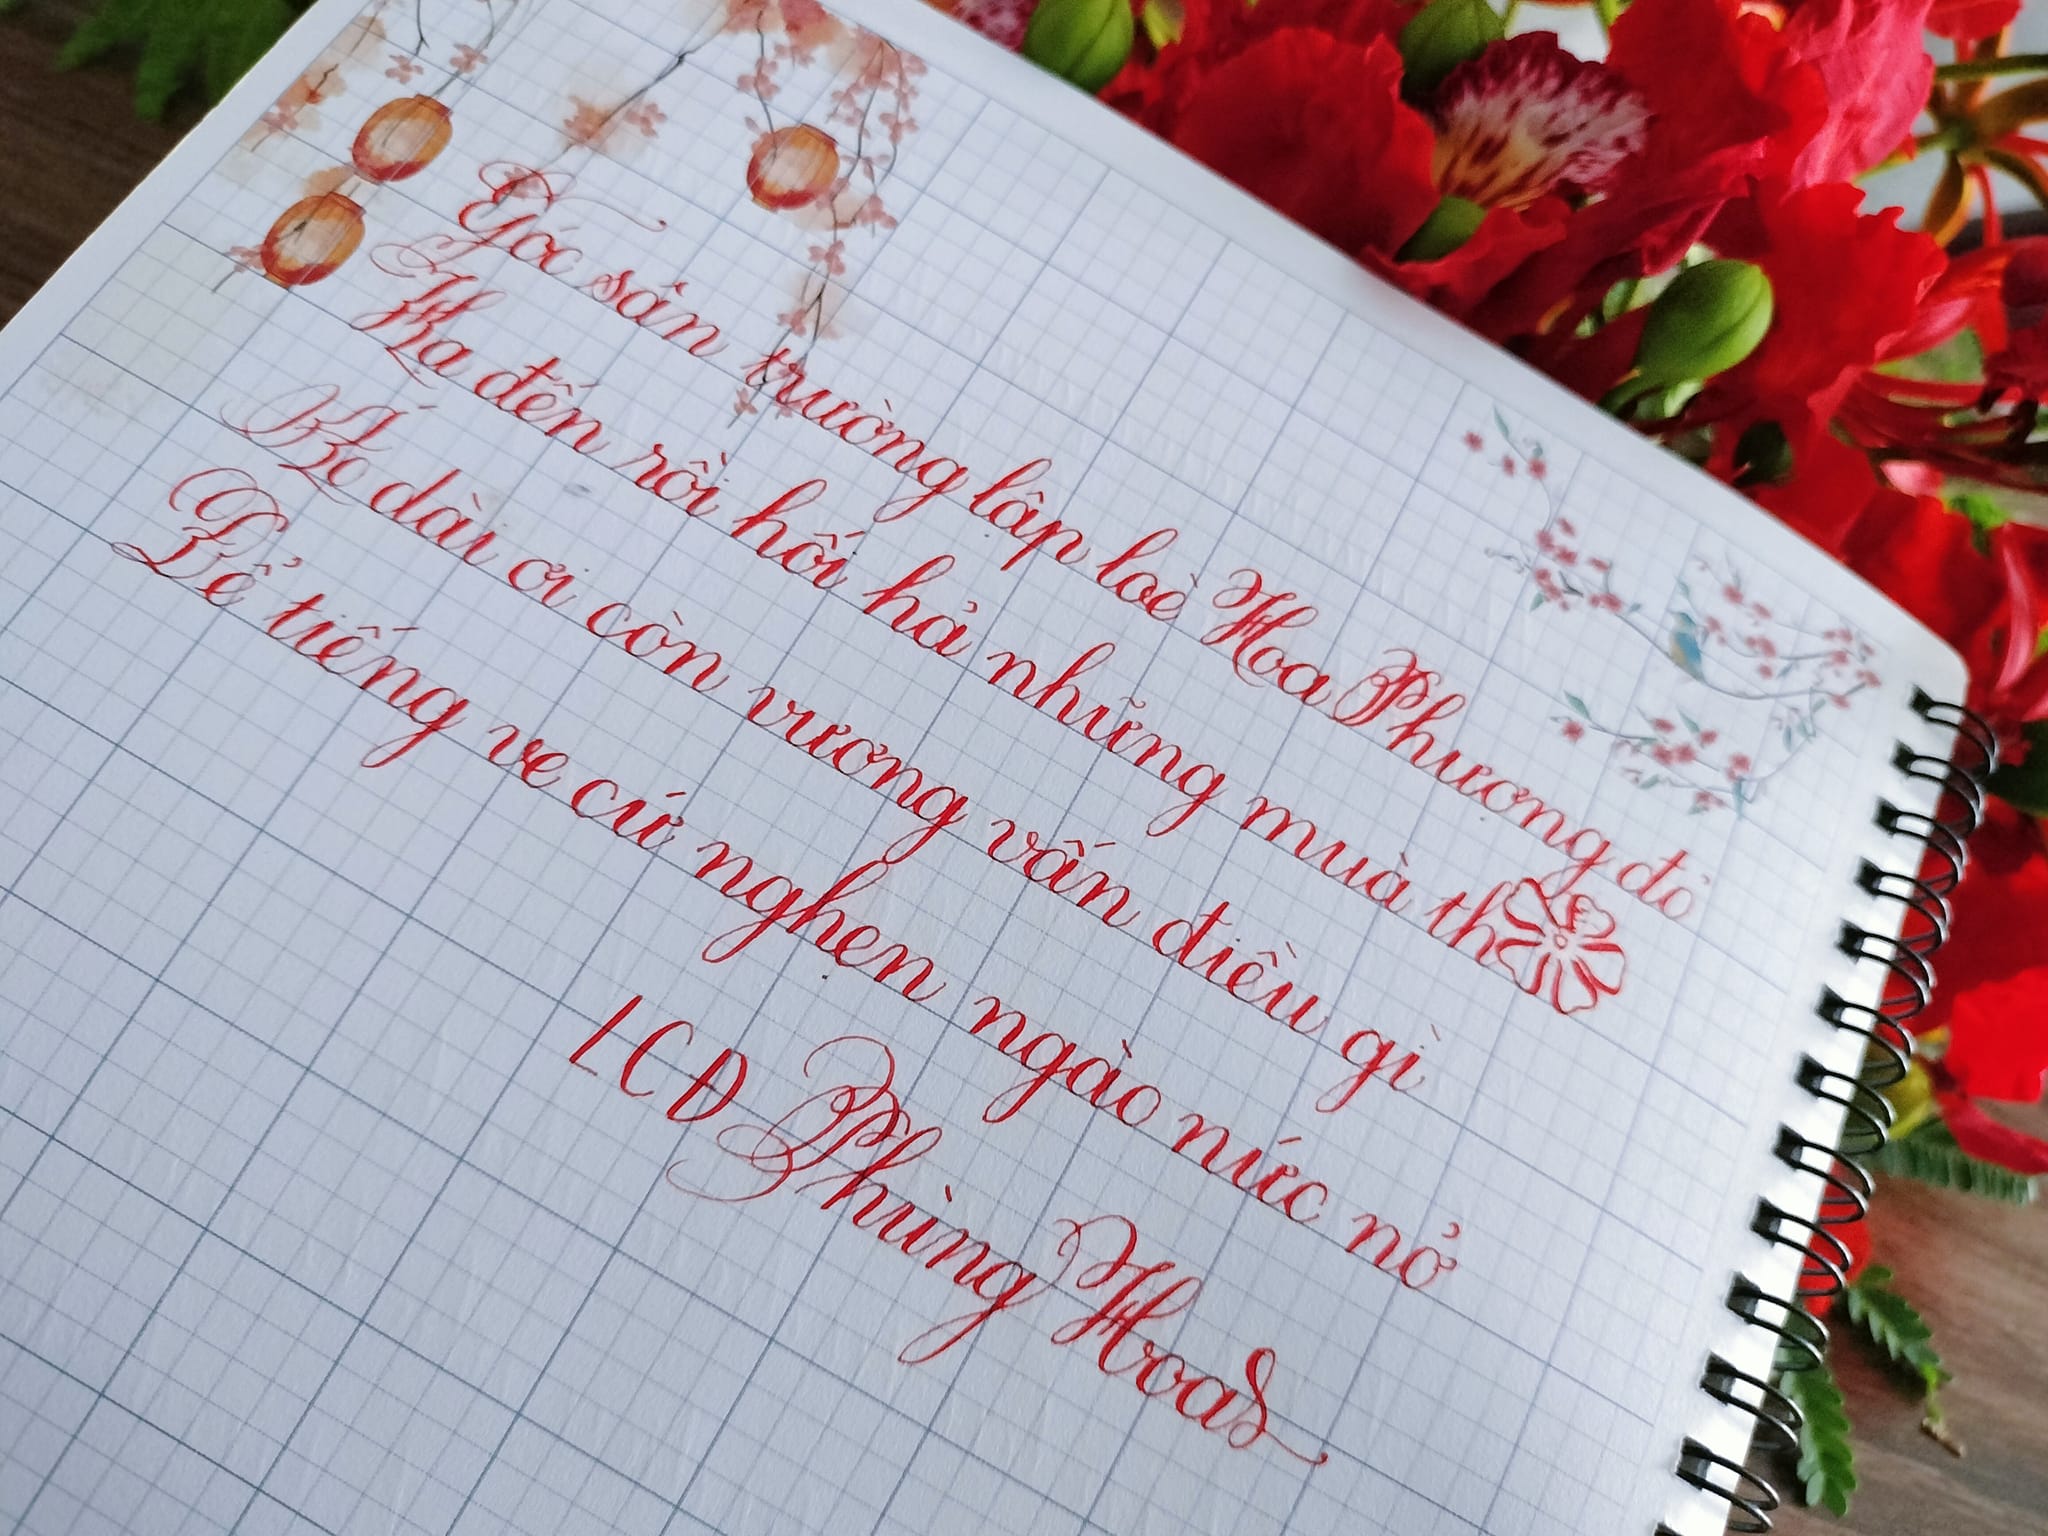 Góc sân trường lập loè Hoa Phượng đỏ
Hạ đến rồi hối hả những muà th
Hè dài ơi còn vương vấn điều gì
Để tiếng ve cứ nghẹn ngào nức nở
LCĐ Phùng Hoa